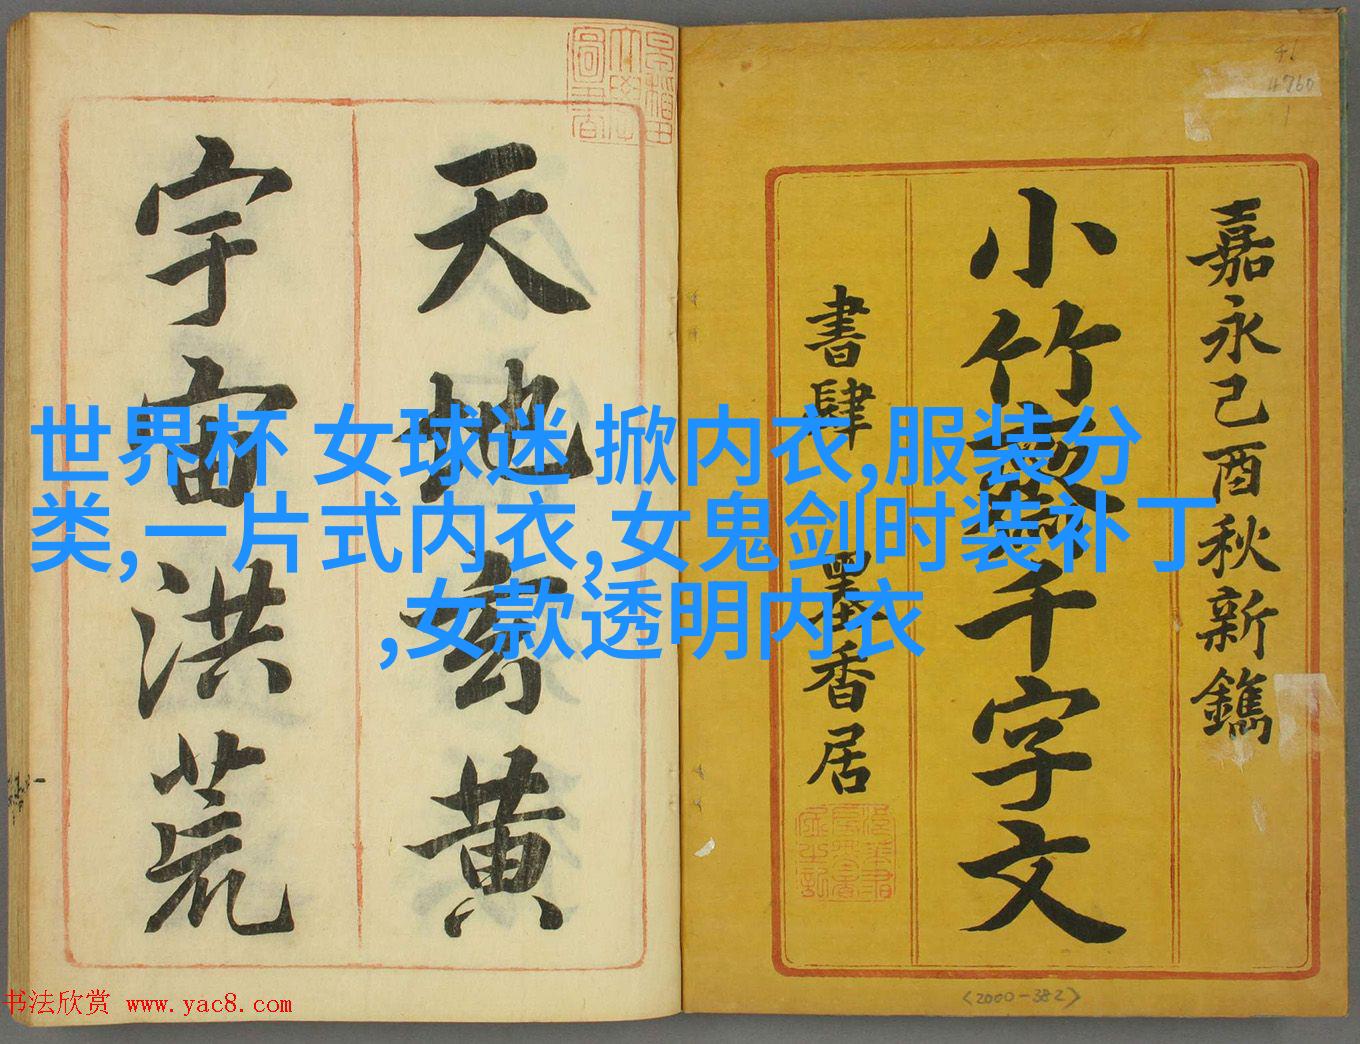 嘉永己酉秋新鐫
小竹散千字文
書肆 墨香居
天地玄黄
宇宙洪荒
世界杯 女球迷 掀内衣,服装分
类,一片式内衣,女鬼剑时装补丁
,女款透明内衣
书法欣赏 www.yac8.com
4760
<2000-382>